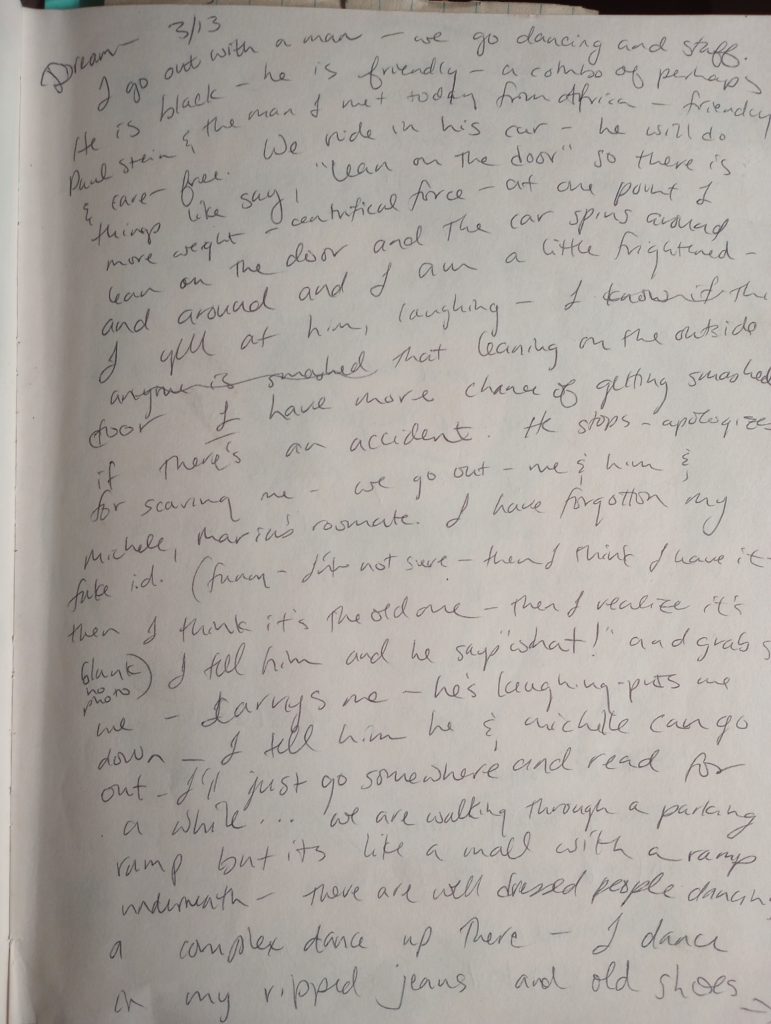 Dream - 3/13
I go out with a man - we go dancing and stuff.
He is black - he is friendly - a combo of perhaps
Paul Stein & the man I met today from Africa - friendly
& care-free. We ride in his car - he will do
things like say, "lean on the door" so there is
more weight - centrifical force - at one point I
lean on the door and the car spins around
and around and I am a little frightened -
I yell at him, laughing - I know if the
anyone is smashed that leaning on the outside
door I have more chance of getting smashed
if there's an accident. He stops - apologizes
for scaring me - we go out - me & him &
Michele, Maria's roomate. I have forgotton my
fake i.d. (funny - I'm not sure - then I think I have it -
then I think it's the old one - then I realize it's
blank) I tell him and he says "what!" and grabs
no photo
me - carrys me - he's laughing - puts me
down - I tell him he & michele can go
out - I'll just go somewhere and read for
a while... we are walking through a parking
ramp but its like a mall with a ramp
underneath - there are well dressed people dancing
a complex dance up there - I dance
in my ripped jeans and old shoes